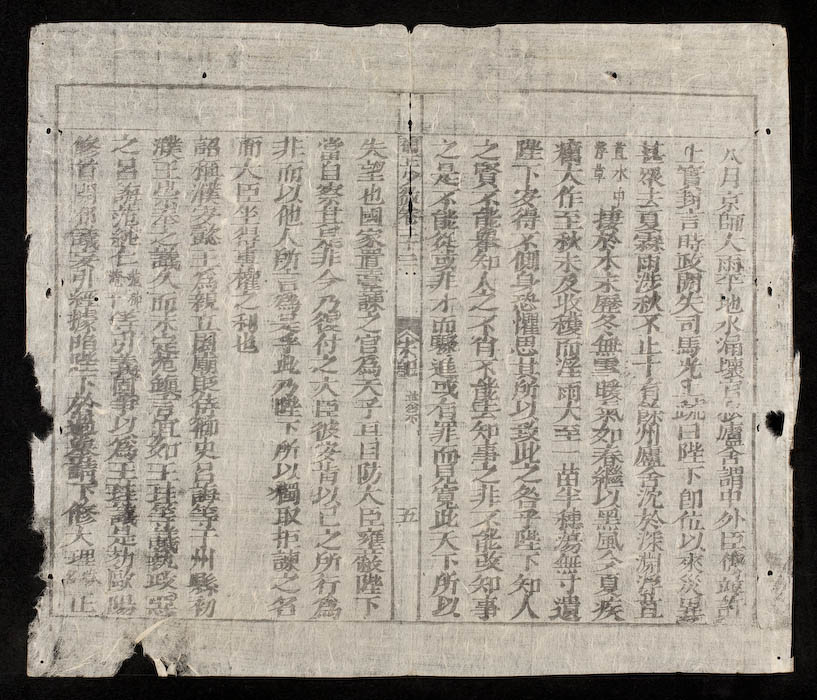 八月京師大雨平地水漏壞官私廬舍詔中外臣僚竝許
上實封言時政闕失司馬光上疏曰陛下即位以來災異
甚衆去夏霖雨涉秋不止十有餘州廬舍沈於深淵浮苴
苴水中浮草棲於木末歷冬無雪暖氣如春繼以黑風今夏疾
癘大作至秋水及收穫而淫雨大至一苗半穗蕩無孑遺
陛下安得不側身恐懼思其所以致此之咎乎陛下知人
之賢不能擧知人之不肖不能去知事之非不能改知事
之是不能從或非才而驟進或有罪而見寬此天下所以
少微卷十二 宋紀 五
失望也國家置臺諫之官爲天子耳目防大臣壅蔽陛下
當自察其是非今乃復付之大臣彼安肯以己之所行爲
非而以他人所言爲是乎此乃陛下所以獨取拒諫之名
而大臣坐得專權之利也
詔稱濮安懿王爲親立園廟貶侍御史呂誨等于州縣初
濮王崇奉之議久而未定范鎭言宜如王珪等議執政惡
之呂誨范純仁等引義固爭以爲王珪議是劾歐陽
脩首開邪議妄引經據陷陛下於過擧請下脩大理正